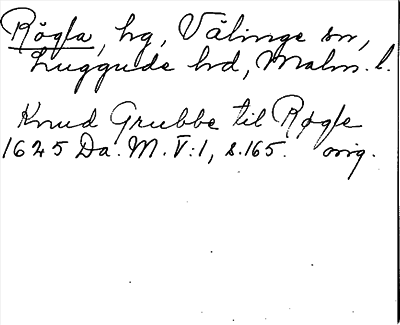 Rögla, hg, Välinge sn,
Luggude hd, Malm. l.
Knud Grubbe til Røgle
1625 Da. M. V:1, s.165. orig.